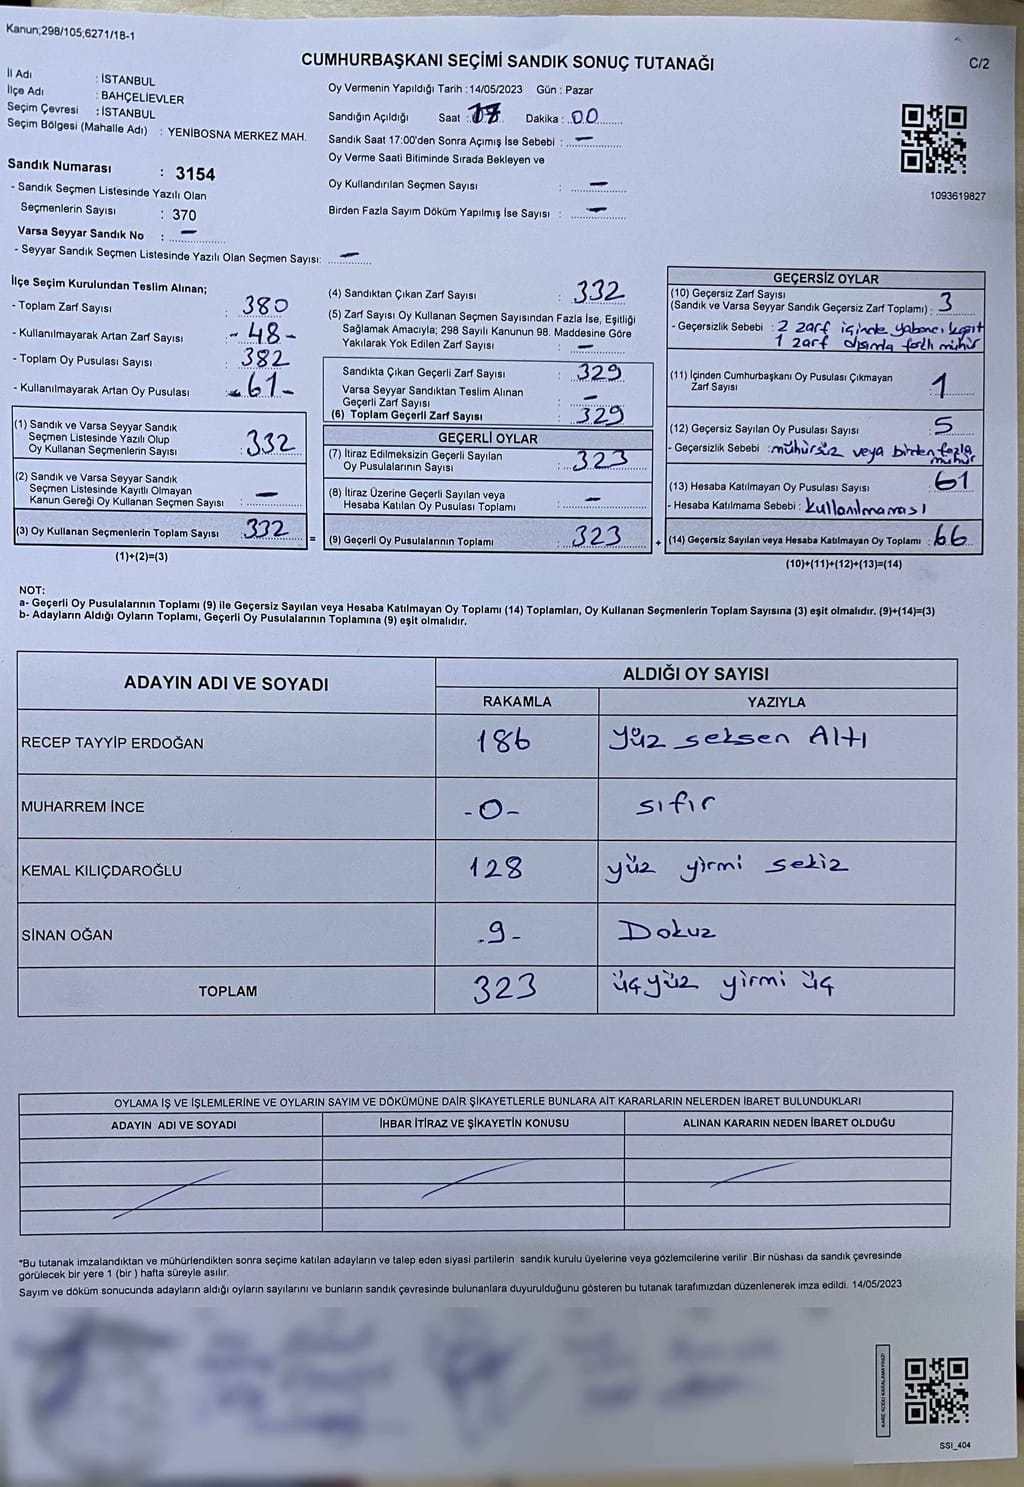 Kanun;298/105;6271/18-1
CUMHURBAŞKANI SEÇİMİ SANDIK SONUÇ TUTANAĞI
C/2
İl Adı : İSTANBUL
İlçe Adı : BAHÇELİEVLER
Seçim Çevresi : İSTANBUL
Seçim Bölgesi (Mahalle Adı) : YENİBOSNA MERKEZ MAH.
Sandık Numarası : 3154
- Sandık Seçmen Listesinde Yazılı Olan
Seçmenlerin Sayısı : 370
Varsa Seyyar Sandık No : —
- Seyyar Sandık Seçmen Listesinde Yazılı Olan Seçmen Sayısı: —
Oy Vermenin Yapıldığı Tarih : 14/05/2023 Gün : Pazar
Sandığın Açıldığı Saat : 17 Dakika : 00
Sandık Saat 17:00'den Sonra Açımış İse Sebebi : —
Oy Verme Saati Bitiminde Sırada Bekleyen ve
Oy Kullandırılan Seçmen Sayısı : —
Birden Fazla Sayım Döküm Yapılmış İse Sayısı : —
1093619827
İlçe Seçim Kurulundan Teslim Alınan;
- Toplam Zarf Sayısı : 380
- Kullanılmayarak Artan Zarf Sayısı : -48-
- Toplam Oy Pusulası Sayısı : 382
- Kullanılmayarak Artan Oy Pusulası : -61-
(1) Sandık ve Varsa Seyyar Sandık
Seçmen Listesinde Yazılı Olup
Oy Kullanan Seçmenlerin Sayısı : 332
(2) Sandık ve Varsa Seyyar Sandık
Seçmen Listesinde Kayıtlı Olmayan
Kanun Gereği Oy Kullanan Seçmen Sayısı : —
(3) Oy Kullanan Seçmenlerin Toplam Sayısı : 332
(1)+(2)=(3)
=
(4) Sandıktan Çıkan Zarf Sayısı : 332
(5) Zarf Sayısı Oy Kullanan Seçmen Sayısından Fazla İse, Eşitliği
Sağlamak Amacıyla; 298 Sayılı Kanunun 98. Maddesine Göre
Yakılarak Yok Edilen Zarf Sayısı : —
Sandıkta Çıkan Geçerli Zarf Sayısı : 329
Varsa Seyyar Sandıktan Teslim Alınan
Geçerli Zarf Sayısı : —
(6) Toplam Geçerli Zarf Sayısı : 329
GEÇERLİ OYLAR
(7) İtiraz Edilmeksizin Geçerli Sayılan
Oy Pusulalarının Sayısı : 323
(8) İtiraz Üzerine Geçerli Sayılan veya
Hesaba Katılan Oy Pusulaları Toplamı : —
(9) Geçerli Oy Pusulalarının Toplamı : 323
+
GEÇERSİZ OYLAR
(10) Geçersiz Zarf Sayısı
(Sandık ve Varsa Seyyar Sandık Geçersiz Zarf Toplamı) : 3
- Geçersizlik Sebebi : 2 zarf içinde yabancı kağıt
1 zarf dışında fazla mühür
(11) İçinden Cumhurbaşkanı Oy Pusulası Çıkmayan
Zarf Sayısı : 1
(12) Geçersiz Sayılan Oy Pusulası Sayısı : 5
- Geçersizlik Sebebi : mühürsüz veya birden fazla
mühür
(13) Hesaba Katılmayan Oy Pusulası Sayısı : 61
- Hesaba Katılmama Sebebi : kullanılmaması
(14) Geçersiz Sayılan veya Hesaba Katılmayan Oy Toplamı : 66
(10)+(11)+(12)+(13)=(14)
NOT:
a- Geçerli Oy Pusulalarının Toplamı (9) ile Geçersiz Sayılan veya Hesaba Katılmayan Oy Toplamı (14) Toplamları, Oy Kullanan Seçmenlerin Toplam Sayısına (3) eşit olmalıdır. (9)+(14)=(3)
b- Adayların Aldığı Oyların Toplamı, Geçerli Oy Pusulalarının Toplamına (9) eşit olmalıdır.
ADAYIN ADI VE SOYADI ALDIĞI OY SAYISI
RAKAMLA YAZIYLA
RECEP TAYYİP ERDOĞAN 186 Yüz seksen Altı
MUHARREM İNCE -0- sıfır
KEMAL KILIÇDAROĞLU 128 yüz yirmi sekiz
SİNAN OĞAN -9- Dokuz
TOPLAM 323 üçyüz yirmi üç
OYLAMA İŞ VE İŞLEMLERİNE VE OYLARIN SAYIM VE DÖKÜMÜNE DAİR ŞİKAYETLERLE BUNLARA AİT KARARLARIN NELERDEN İBARET BULUNDUKLARI
ADAYIN ADI VE SOYADI İHBAR İTİRAZ VE ŞİKAYETİN KONUSU ALINAN KARARIN NEDEN İBARET OLDUĞU
*Bu tutanak imzalandıktan ve mühürlendikten sonra seçime katılan adayların ve talep eden siyasi partilerin sandık kurulu üyelerine veya gözlemcilerine verilir .Bir nüshası da sandık çevresinde
görülecek bir yere 1 (bir ) hafta süreyle asılır.
Sayım ve döküm sonucunda adayların aldığı oyların sayılarını ve bunların sandık çevresinde bulunanlara duyurulduğunu gösteren bu tutanak tarafımızdan düzenlenerek imza edildi. 14/05/2023
SSI_404